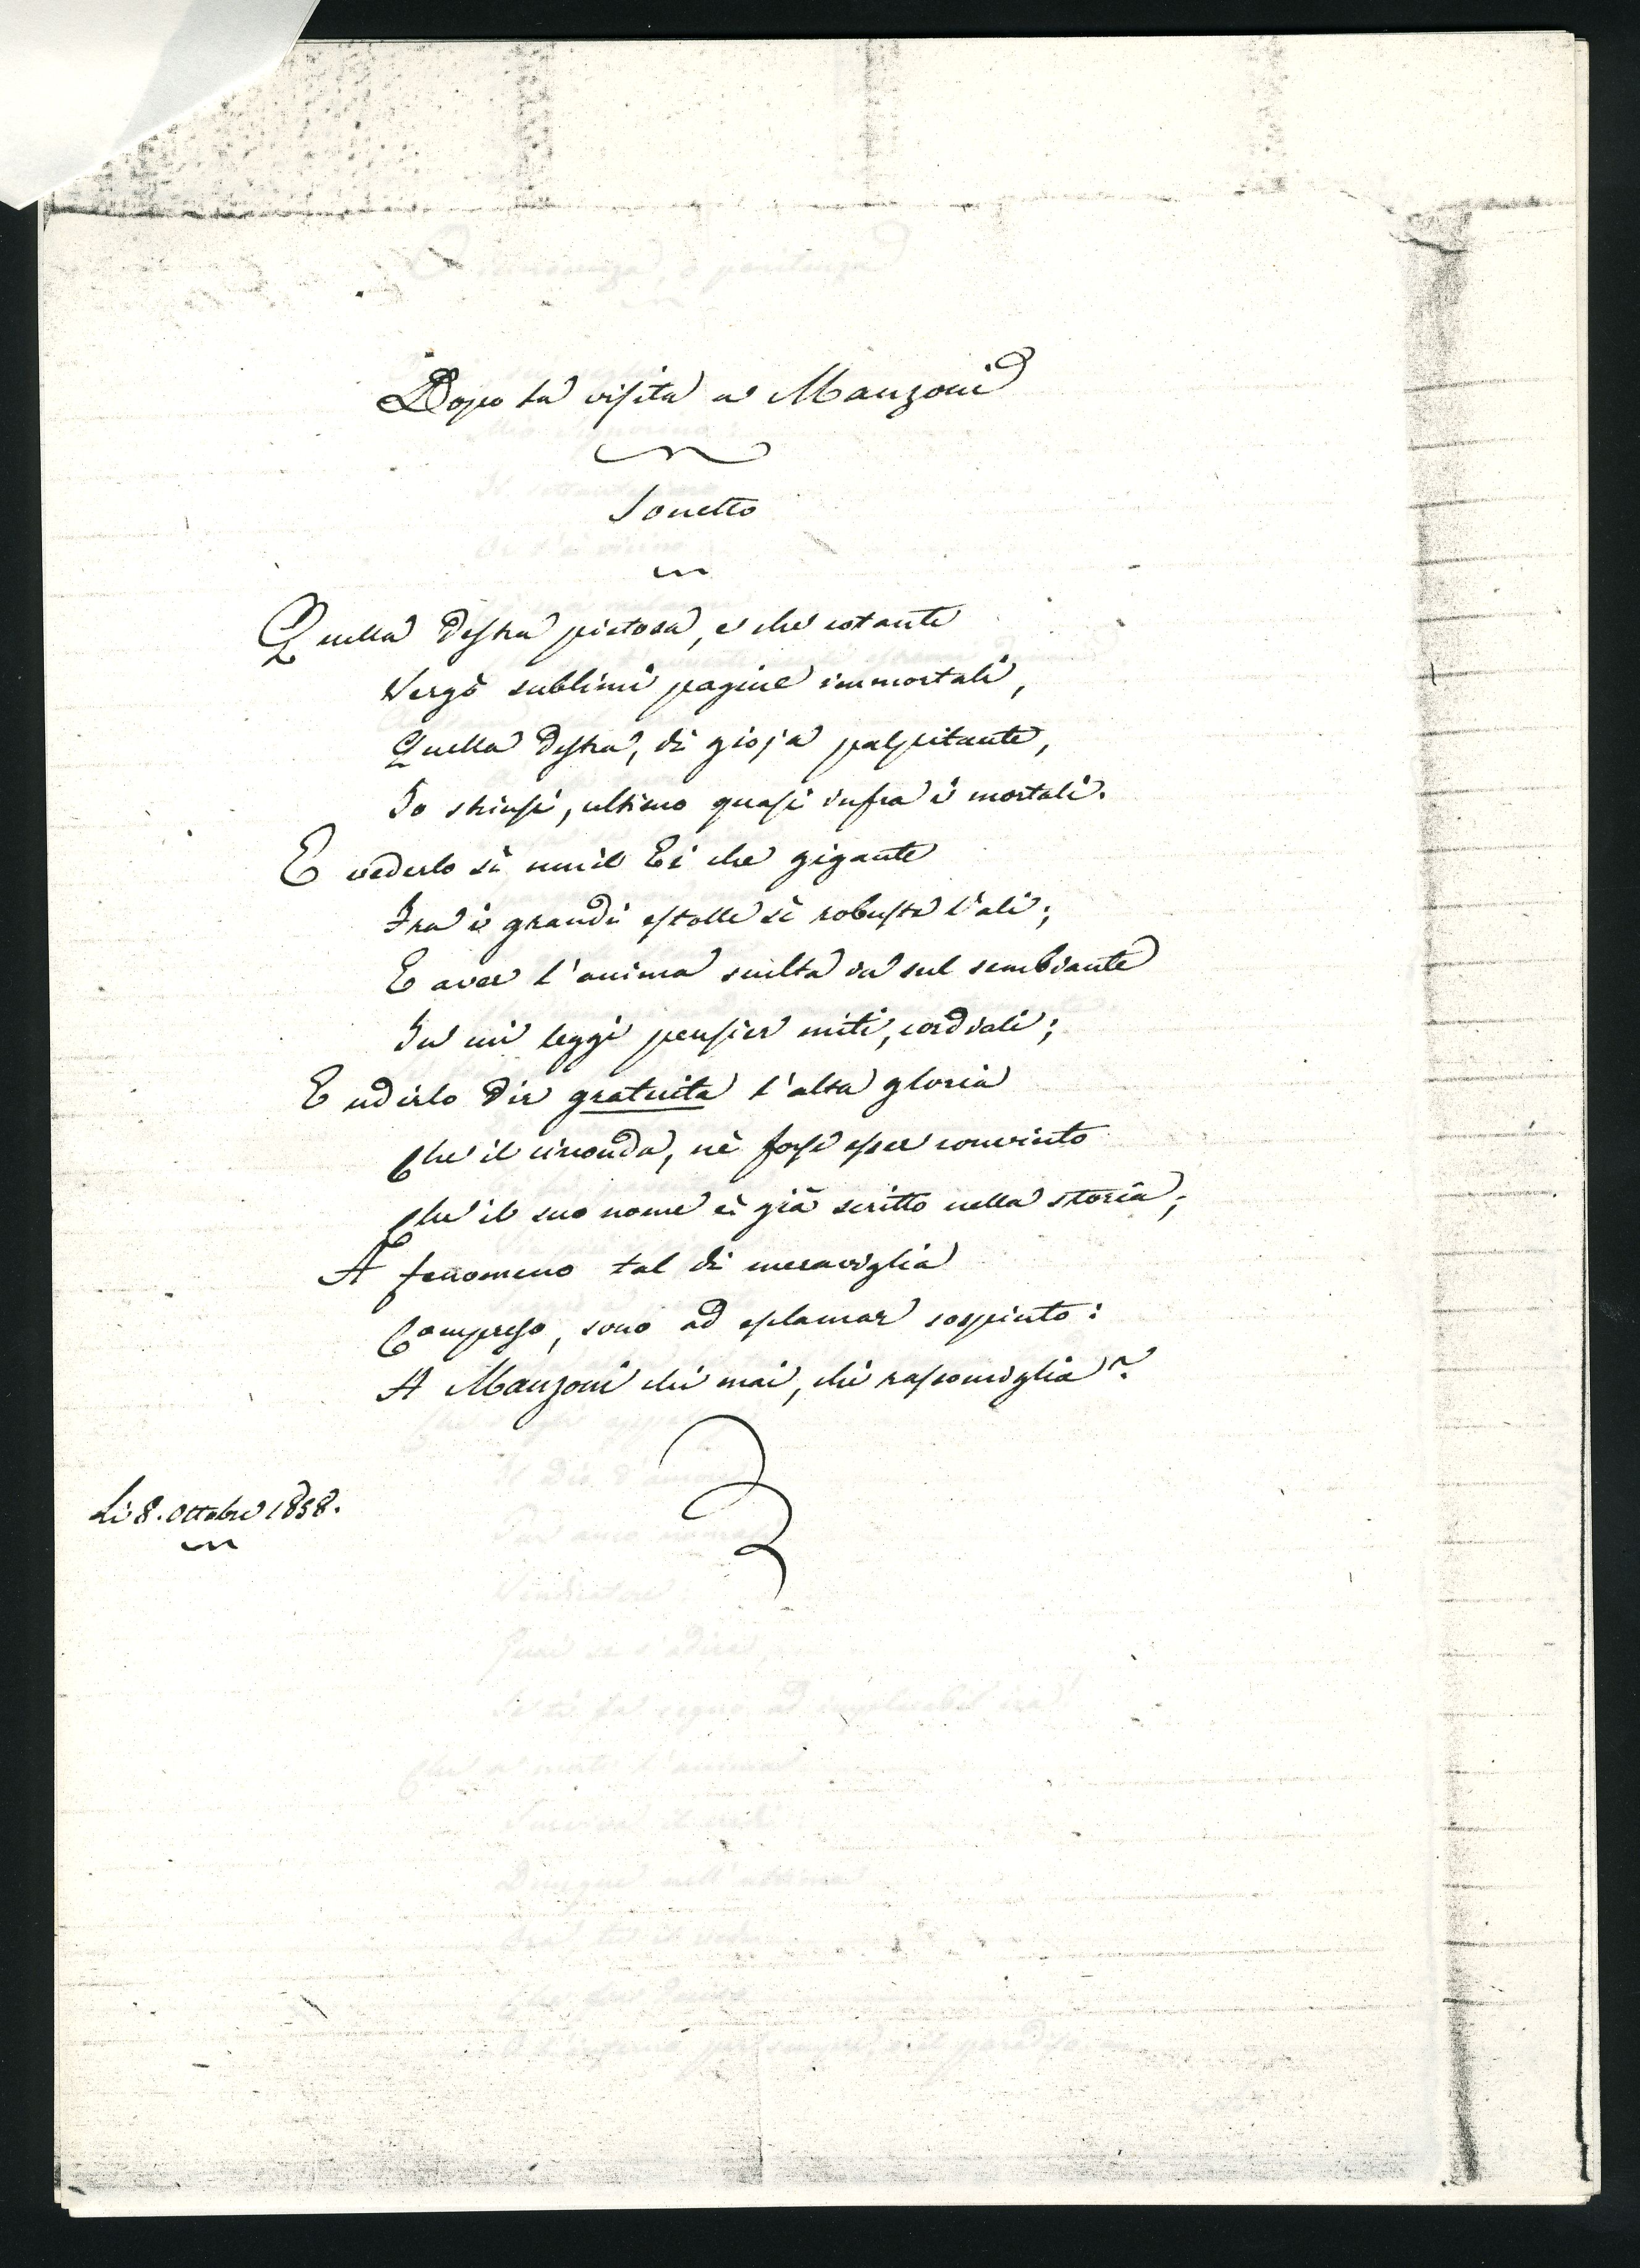 Dopo la visita a Manzoni
Sonetto
Quella destra pietosa, e che cotante
Vergò sublimi pagine immortali,
Quella destra, di gioja palpitante,
Io strinsi, ultimo quasi infra i mortali.
E vederlo sì umil Ei che gigante
Fra i grandi estolle sì robuste l'ali;
E aver l'anima scolta in sul sembiante
In cui leggi pensier miti, cordiali;
E udirlo dir gratuita l'alta gloria
Che il circonda, nè forse esser convinto
Che il suo nome è già scritto nella storia;
A fenomeno tal di meraviglia
Compreso, sono ad esclamar sospinto:
A Manzoni chi mai, chi rassomiglia?
Li 8. Ottobre 1858.